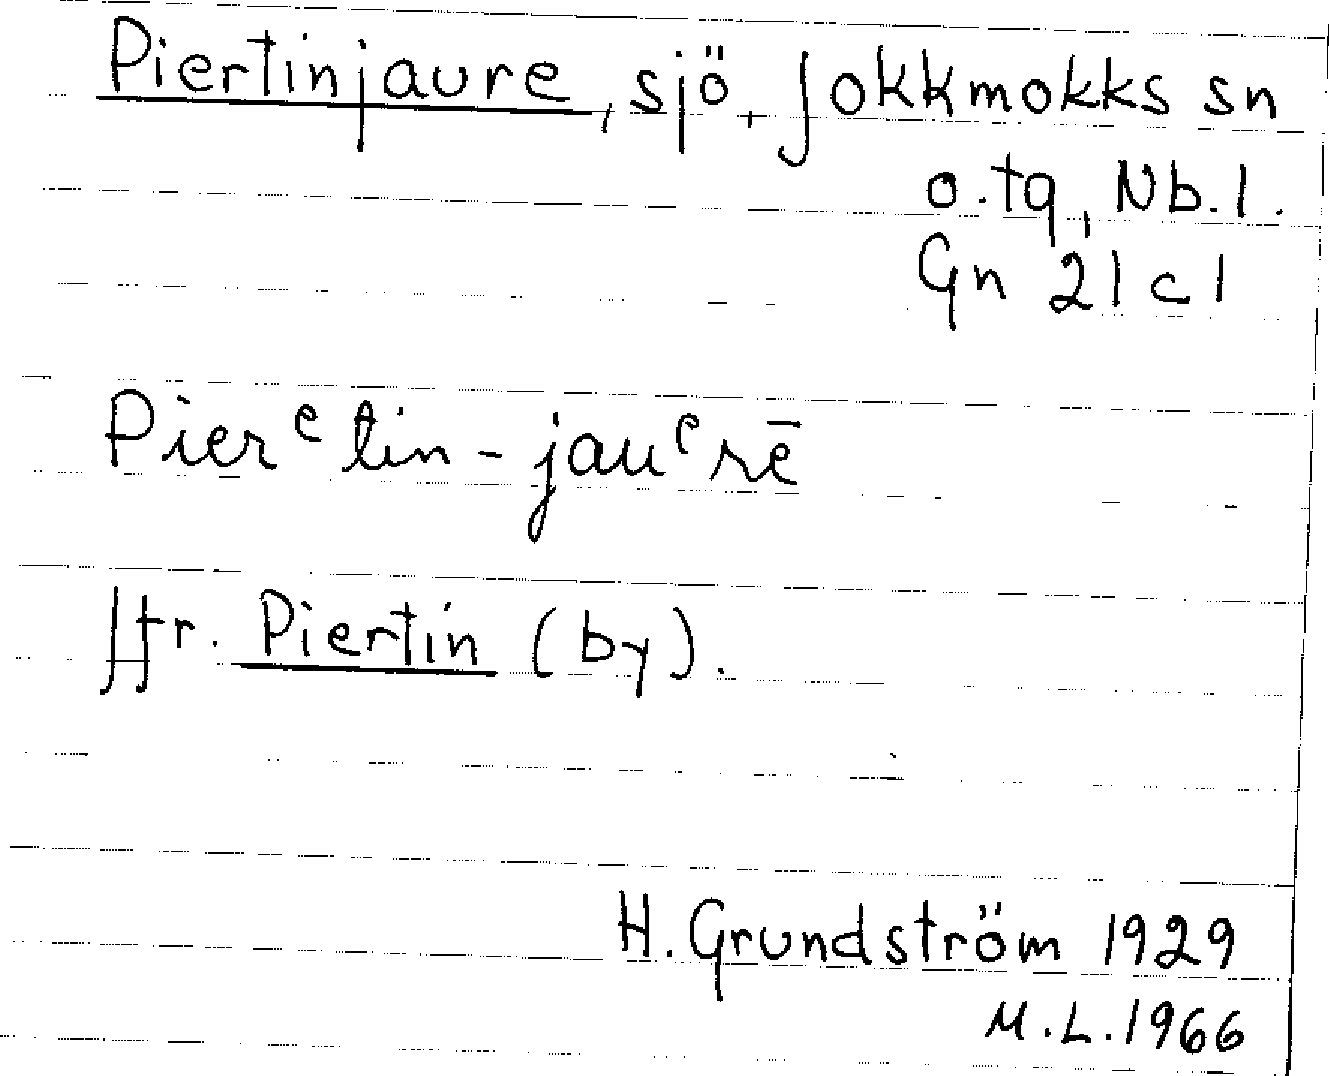 Piertinjaure, sjö, Jokkmokks sn
o. tg, Nb. l.
Gn 21 c 1
Pierᵉtin-jauᵉrē
Jfr. Piertin (by).
H. Grundström 1929
M.L. 1966